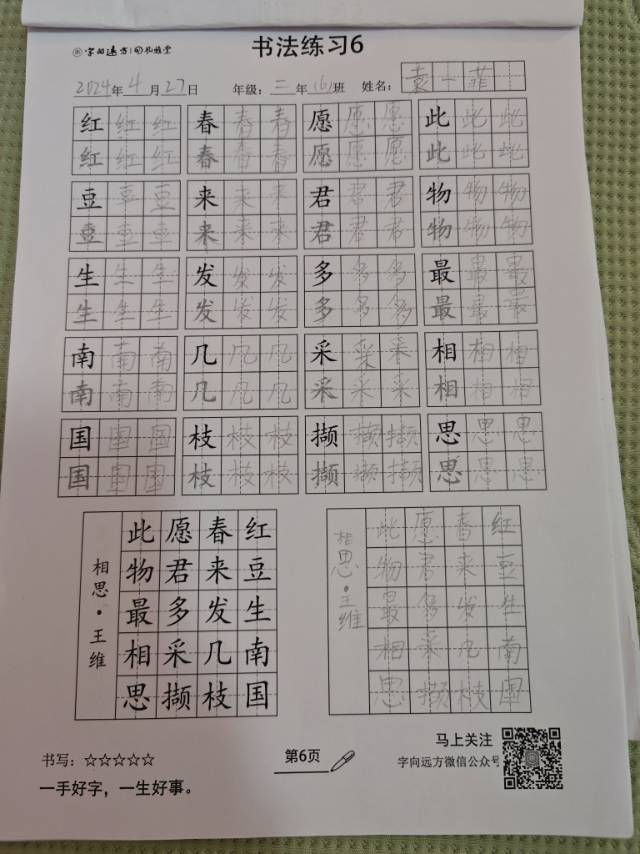 字向远方 书法练习6
2024年4月27日 年级：三年16班 姓名：袁一菲
红 红 红 春 春 春 愿 愿 愿 此 此 此
红 红 红 春 春 春 愿 愿 愿 此 此 此
豆 豆 豆 来 来 来 君 君 君 物 物 物
豆 豆 豆 来 来 来 君 君 君 物 物 物
生 生 生 发 发 发 多 多 多 最 最 最
生 生 生 发 发 发 多 多 多 最 最 最
南 南 南 几 几 几 采 采 采 相 相 相
南 南 南 几 几 几 采 采 采 相 相 相
国 国 国 枝 枝 枝 撷 撷 撷 思 思 思
国 国 国 枝 枝 枝 撷 撷 撷 思 思 思
红豆生南国
春来发几枝
愿君多采撷
此物最相思
相思·王维
红豆生南国
春来发几枝
愿君多采撷
此物最相思
相思·王维
书写：☆☆☆☆☆
一手好字，一生好事。
第6页
马上关注
字向远方微信公众号